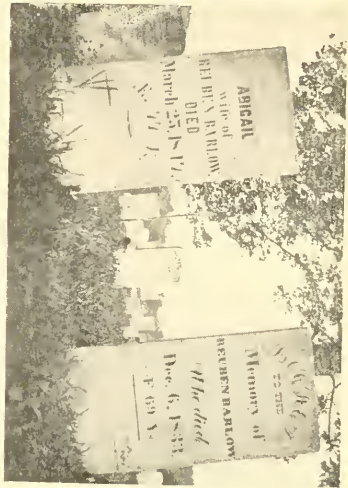 ABIGAIL
wife of
REUBEN BARLOW
DIED
March
Sacred
TO THE
Memory of
REUBEN BARLOW
Who died
Dec. 6, 1833
Æ 69